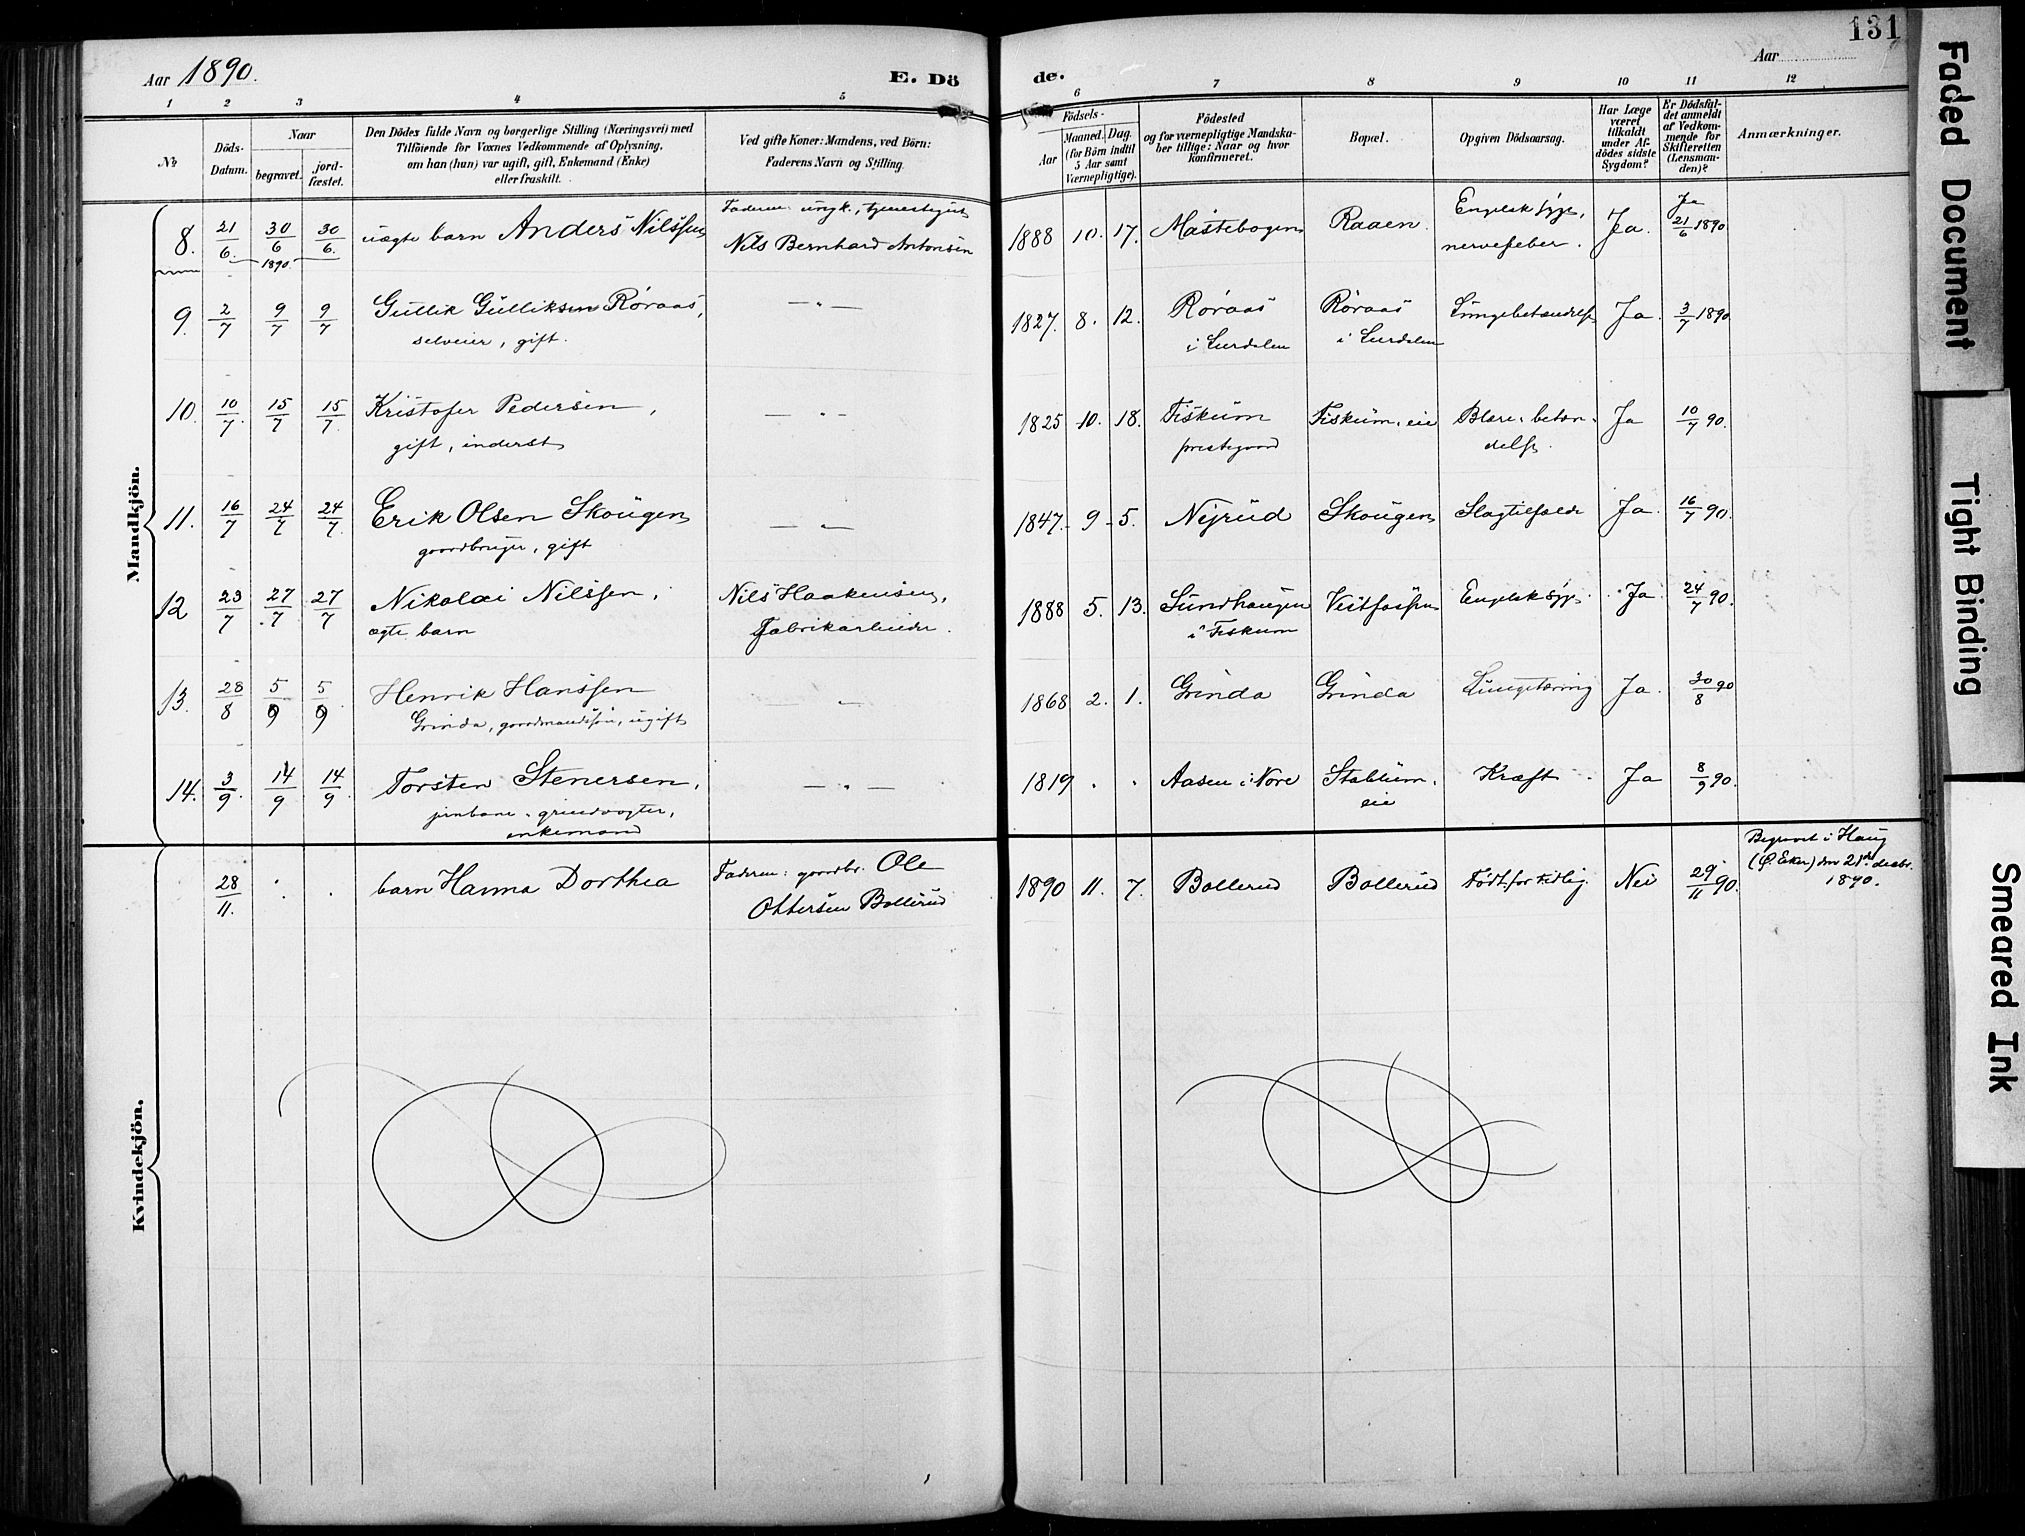 131
Aar 1890.
E. Dö
de.
Aar
1 2 3 4 5
6 7 8 9 10 11 12
No
Döds-Datum.
Naar
begravet.
jordfæstet.
Den Dödes fulde Navn og borgerlige Stilling (Næringsvei) med
Tilföiende for Voxnes Vedkommende af Oplysning,
om han (hun) var ugift, gift, Enkemand (Enke)
eller fraskilt.
Ved gifte Koner: Mandens, ved Börn:
Faderens Navn og Stilling.
Födsels-
Aar
Maaned. Dag.
(for Börn indtil
5 Aar samt
Værnepligtige).
Födested
og for værnepligtige Mandska-
ber tillige: Naar og hvor
konfirmeret.
Bopæl.
Opgiven Dödsaarsag.
Har Læge
været
tilkaldt
under Af-
dödes sidste
Sygdom?
Er Dödsfal-
det anmeldt
af Vedkom-
mende for
Skifteretten
(Lensman-
den)?
Anmærkninger.
Mandkjön.
8. 21/6. 30/6 30/6. uægte barn Anders Nilssen Faderen: ungk., 1888 10. 17. Raaen. Engelsk syge, Ja. Ja
1890. Nils Bernhard Antonsen nervefeber. 21/6 1890
9. 2/7 9/7 9/7 Gullik Gulliksen Røraas, — " — 1827. 8. 12. Røraas Røraas Lungebetændelse Ja. 3/7 1890
selveier, gift. i Lurdalen i Lurdalen
10. 10/7. 15/7 15/7. Kristofer Pedersen, — " — 1825 10. 18. Fiskum Fiskum. eie Blære. betæn- Ja 10/7 90.
gift, inderst prestegaard delse.
11. 16/7 24/7 24/7. Erik Olsen Skougen — " — 1847. 9 5. Nejrud Skougen Slagtilfælde Ja. 16/7 90.
gaardbruger, gift
12 23/7 27/7 27/7 Nikolai Nilssen, Nils Haakensen, 1888 5. 13. Sundhaugen Vestfossen Engelsk syge. Ja 24/7 90.
ægte barn Fabrikarbeider. i Fiskum
13. 28/8 5/9 5/9 Henrik Hanssen — " — 1868 2. 1. Grinda Grinda Lungetæring Ja. 30/8 90
Grinda, gaardmandssøn, ugift
14. 3/9. 14/9 14/9 Torsten Stenersen, — " — 1819 . . Aasen i Nore Stablum. Kræft. Ja 8/9 90.
jernbane-grindvogter, eie
enkemand
Kvindekjön.
28/11. . . barn Hanna Dorthea Faderen: gaardbr. Ole 1890 11. 7. Bollerud Bollerud Født for tidlig. Nei 29/11 90. Begravet i Haug
Ottersen Bollerud (Ø. Eker) den 21de decbr.
1890.
Faded Document
Tight Binding
Smeared Ink